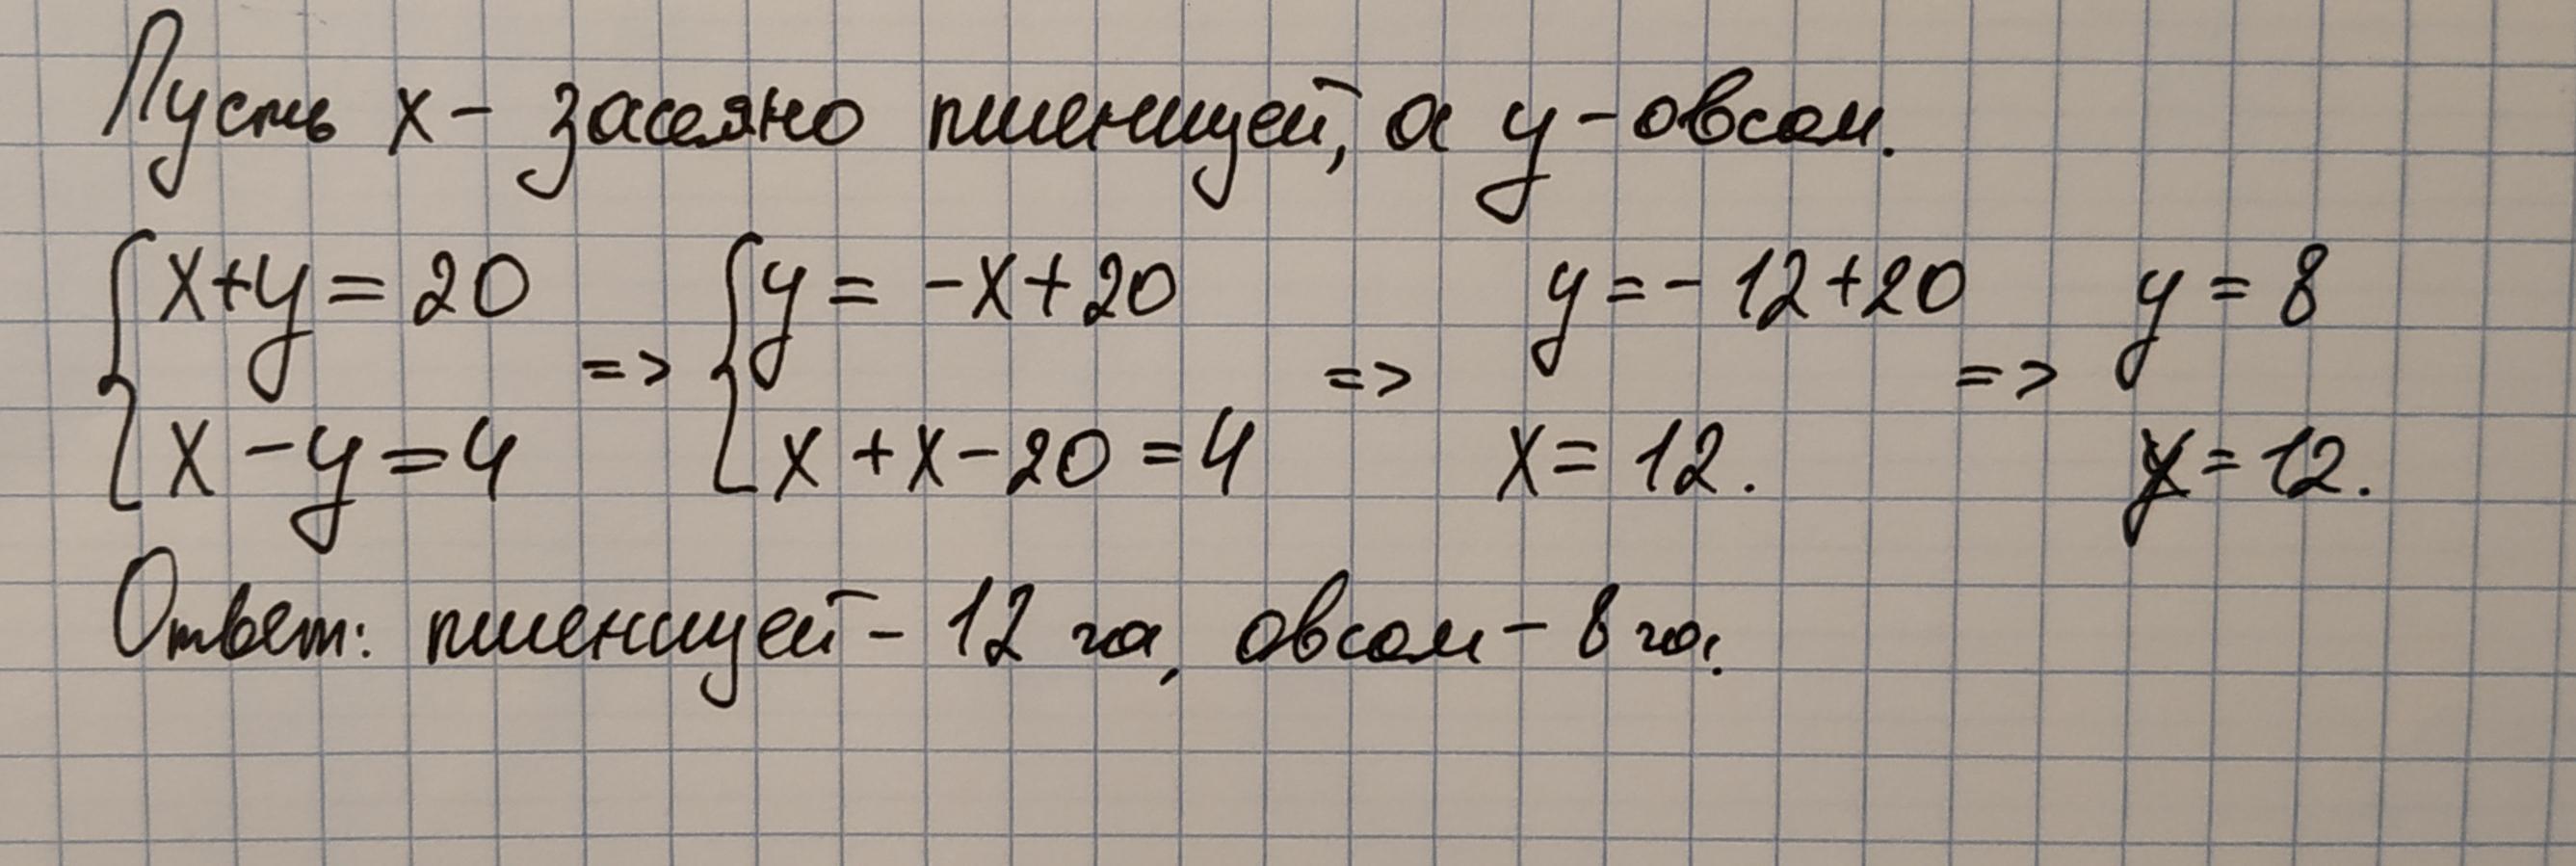 Пусть x - засеяно пшеницей, а y - овсом.
{ x+y = 20 => { y = -x+20 => y = -12+20 => y = 8
x - y = 4 x + x - 20 = 4 x = 12. x = 12.
Ответ: пшеницей - 12 га, овсом - 8 га.